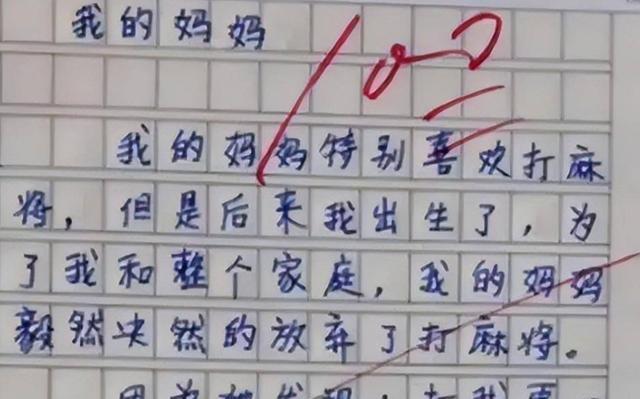 我的妈妈
100
我的妈妈特别喜欢打麻
将，但是后来我出生了，为
了我和整个家庭，我的妈妈
毅然决然的放弃了打麻将。
因为她发现，打我更